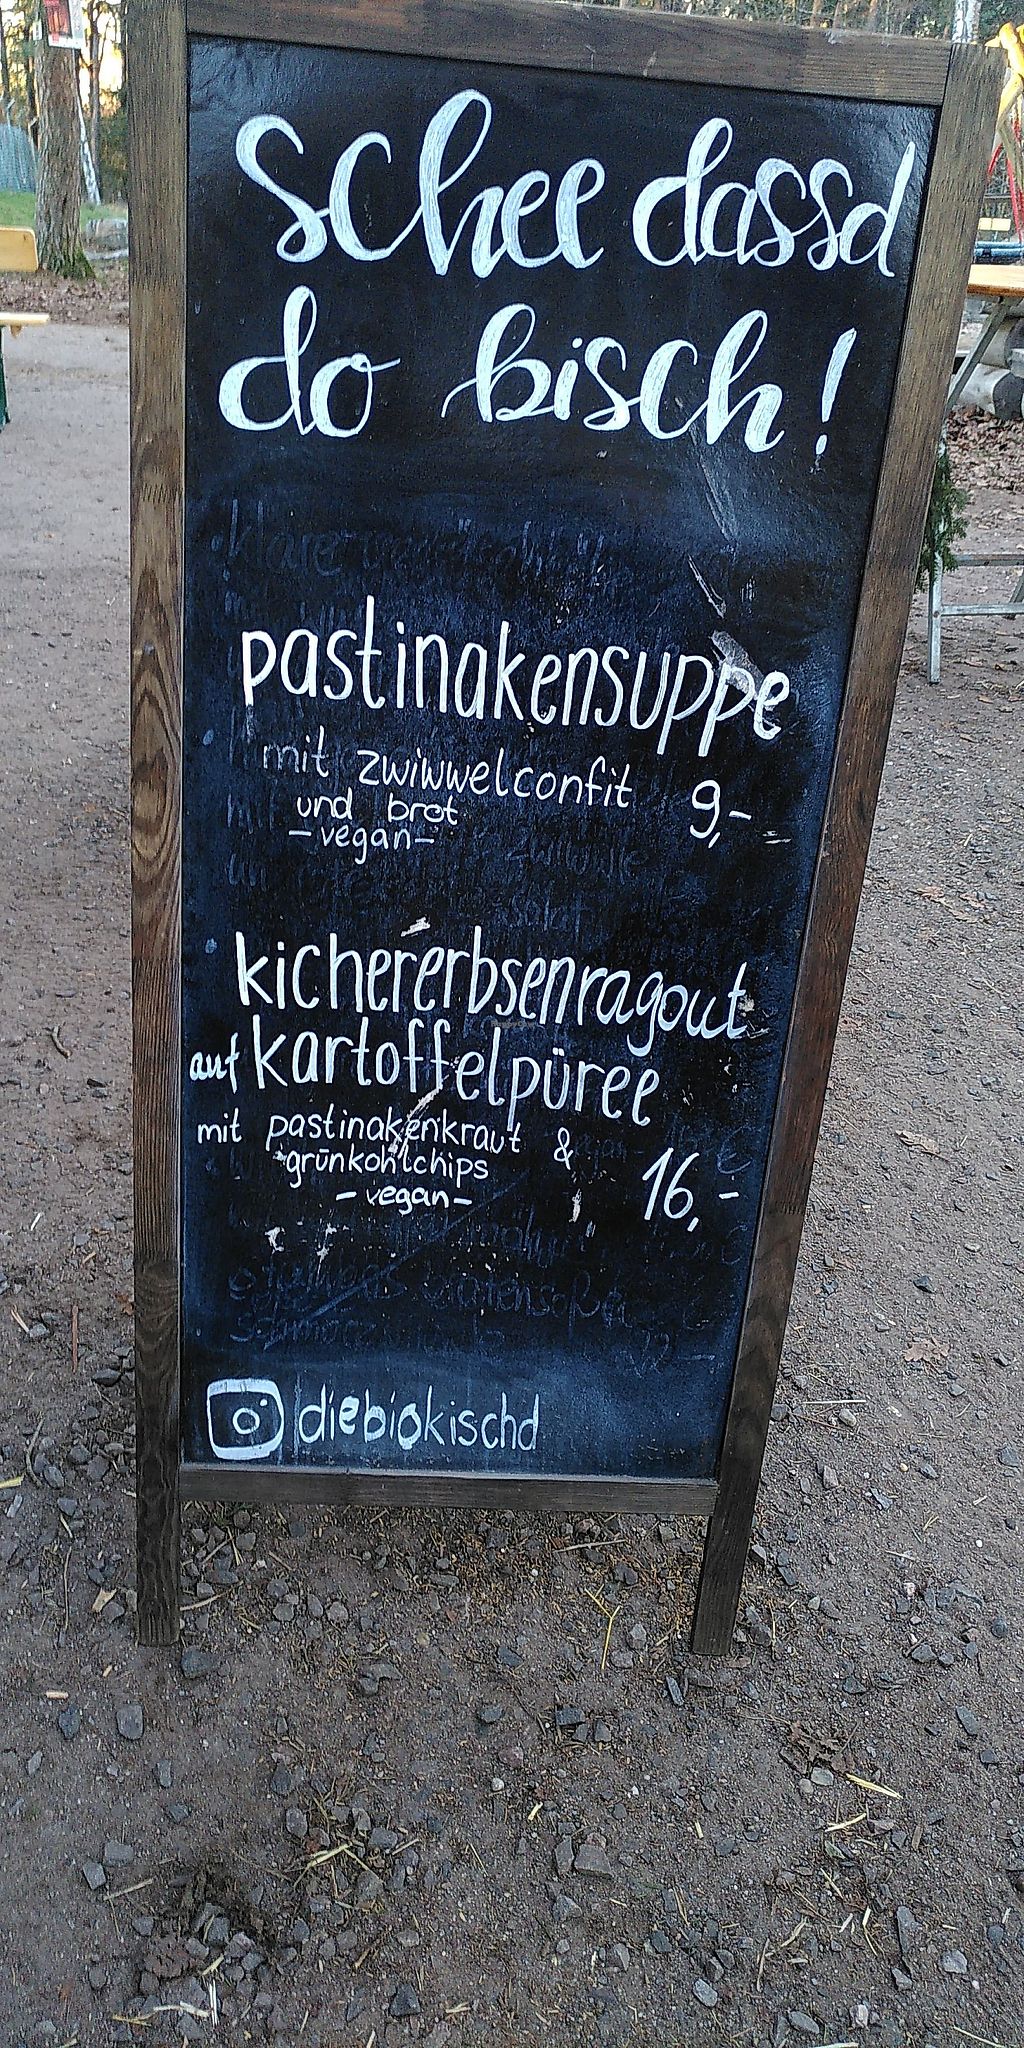 schee dassd
do bisch!
pastinakensuppe
mit zwiwwelconfit 9,-
und brot
-vegan-
kichererbsenragout
auf kartoffelpüree
mit pastinakenkraut &
grünkohlchips 16,-
-vegan-
diebiokischd